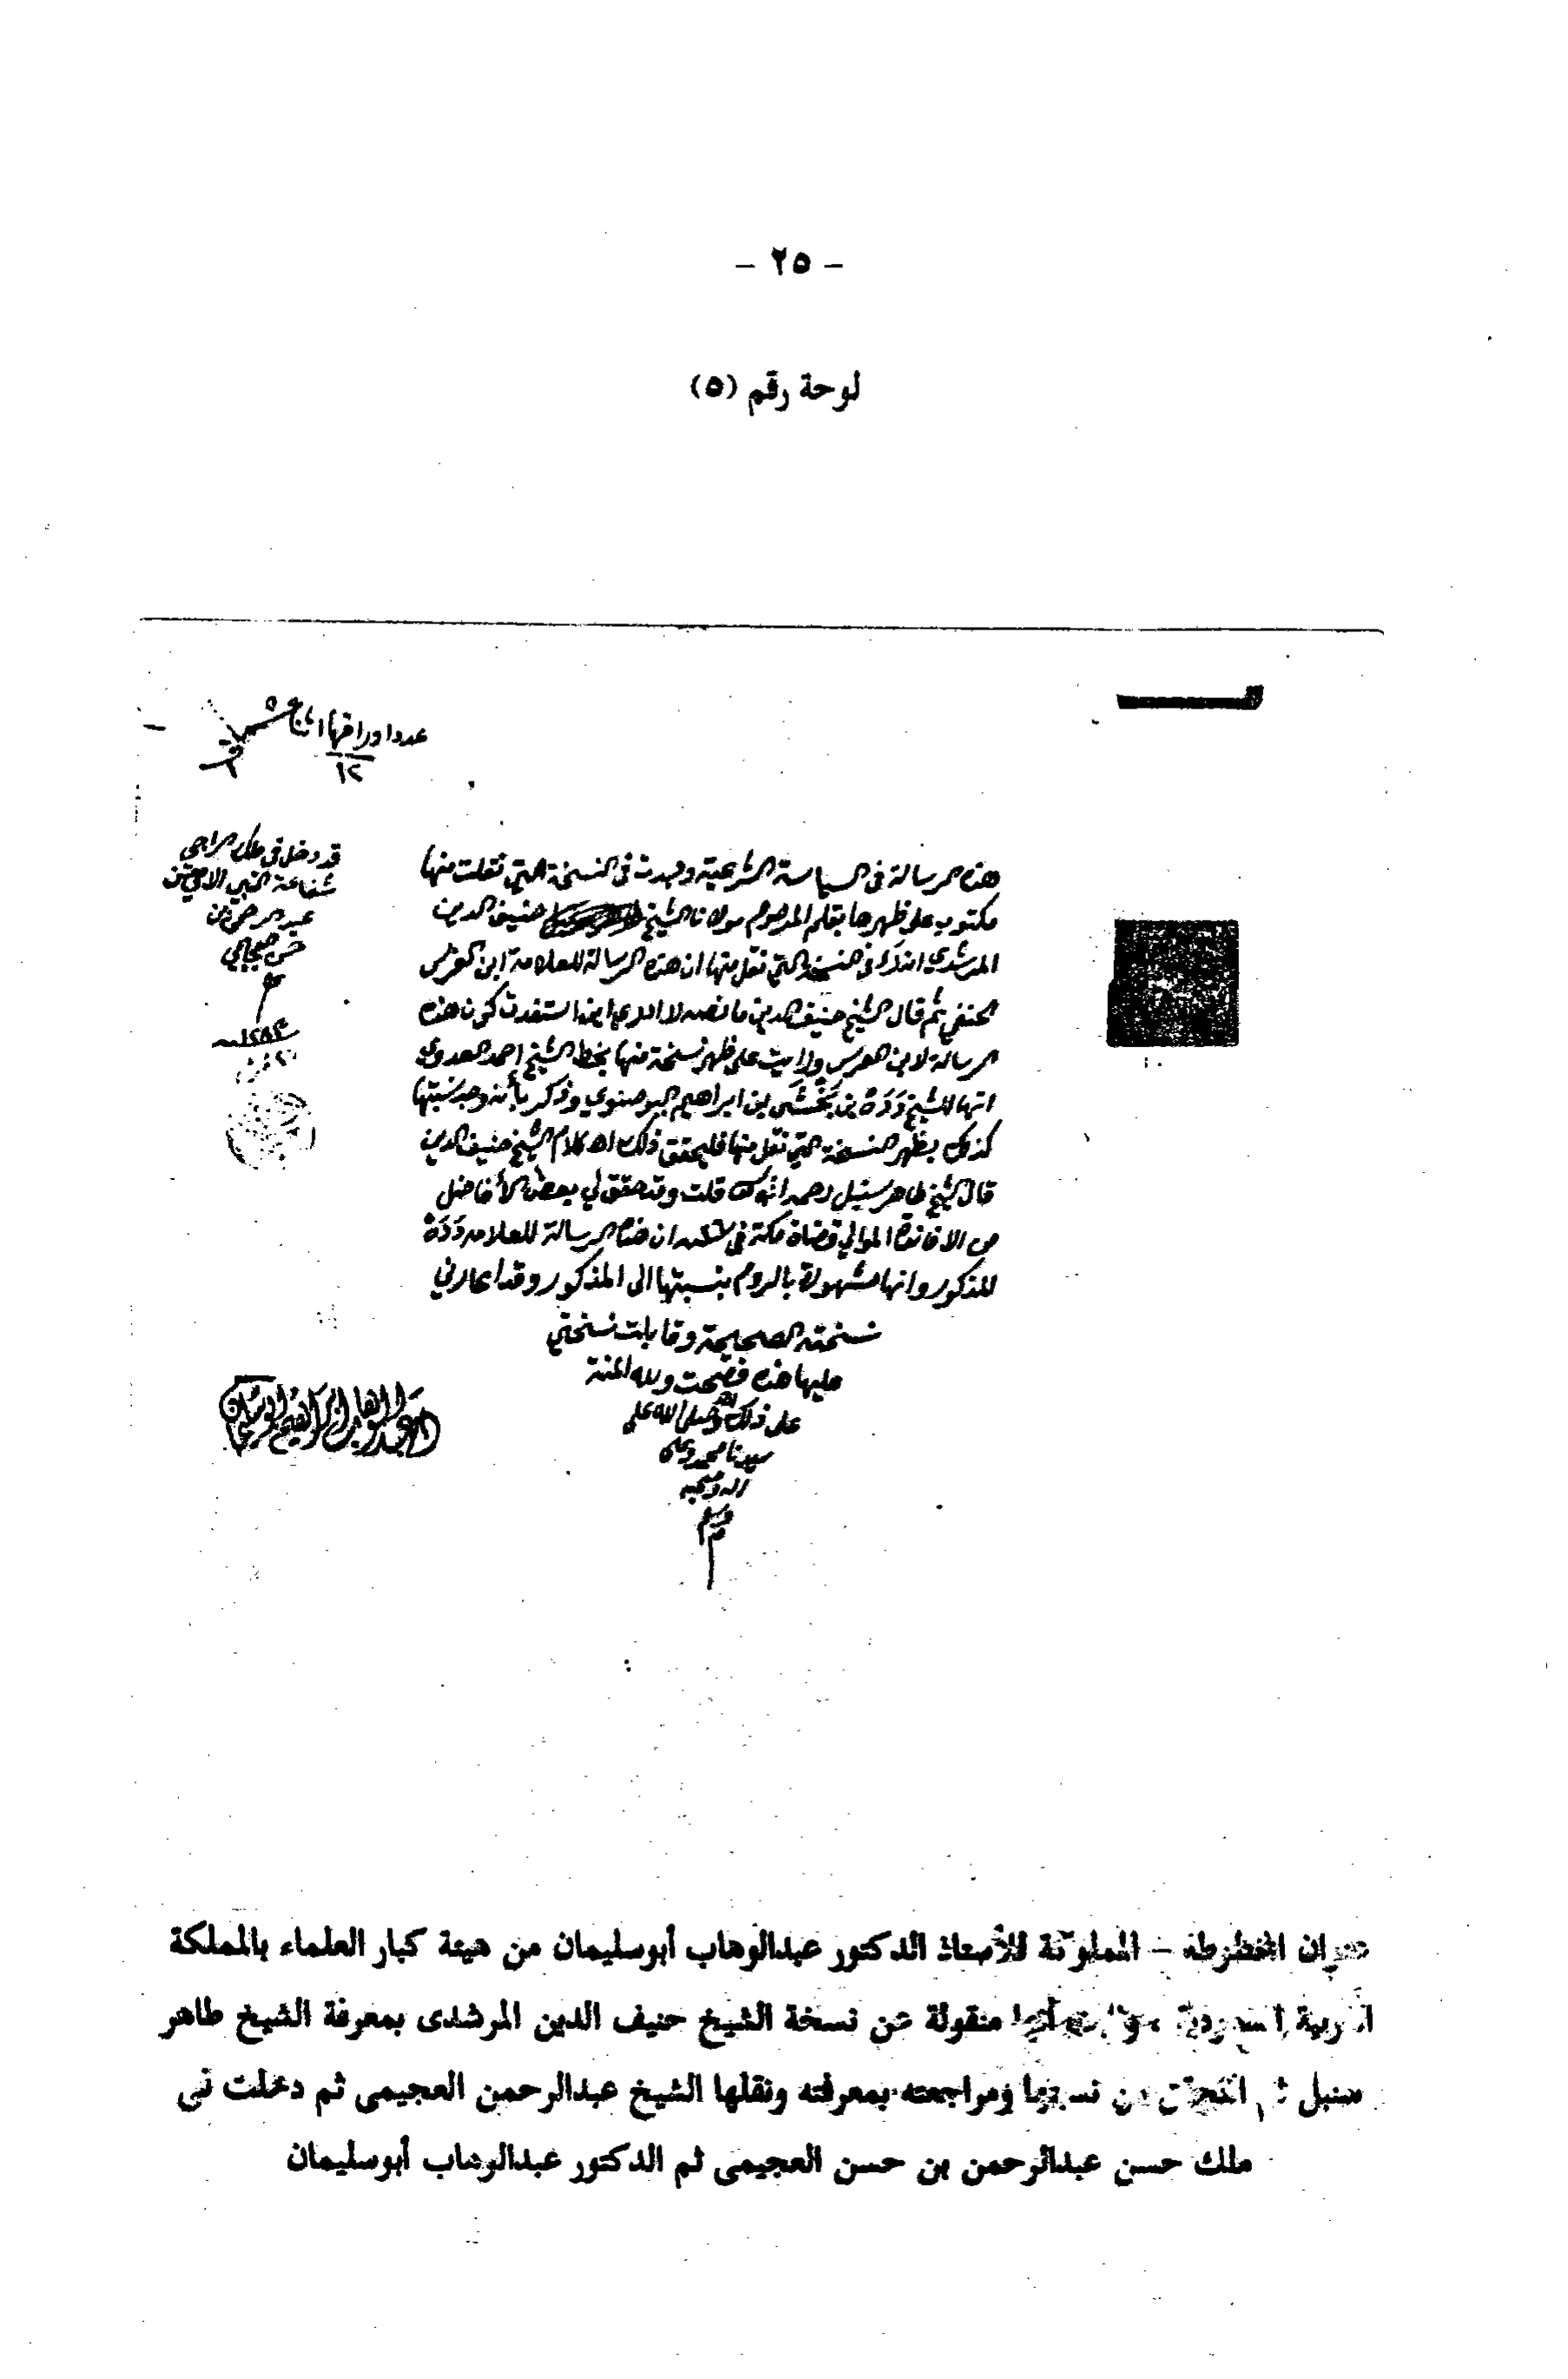 - ٢٥ -
لوحة رقم (٥)
عدد اوراقها اثنا عشر
١٢
قد دخل في ملك راجي
شفاعة النبي الامين
عبد الرحمن بن
حسن عجيمي
هذه الرسالة في السياسة الشرعية وجدت في النسخة التي نقلت منها
مكتوب على ظهرها بقلم المرحوم مولانا الشيخ حنيف الدين
المرشدي انه رأى في النسخة التي نقل منها ان هذه الرسالة للعلامة ابن الغرس
الحنفي ثم قال الشيخ حنيف الدين ما نصه لا ادري اين استفدت كون هذه
الرسالة لابن الغرس ورايت على ظهر نسخة منها بخط الشيخ احمد العدوي
انها للشيخ دَدَهْ بن بَخْشَي بن ابراهيم البوصنوي وذكر بأنه وجد نسبتها
كذلك بظهر النسخة التي نقل منها فليحقق ذلك اه كلام الشيخ حنيف الدين
قال الشيخ طاهر سنبل رحمه الله قلت وقد حقق لي بعض الأفاضل
من الموالي قضاة مكة في ان هذه الرسالة للعلامه دَدَهْ
المذكور وانها مشهورة بالروم بنسبتها الى المذكور وقد اعارني
نسخته الصحيحة وقابلت نسختي
عليها هذه فصحت ولله المنة
على ذلك وصلى الله على
سيدنا محمد وعلى
اله وصحبه
وسلم
عنوان المخطوطة – المملوكة للأستاذ الدكتور عبدالوهاب أبوسليمان من هيئة كبار العلماء بالمملكة
العربية السعودية أنها منقولة عن نسخة الشيخ حنيف الدين المرشدى بمعرفة الشيخ طاهر
سنبل ثم التحقق من نسبتها ومراجعته بمعرفته ونقلها الشيخ عبدالرحمن العجيمى ثم دخلت فى
ملك حسن عبدالرحمن بن حسن العجيمى ثم الدكتور عبدالوهاب أبوسليمان